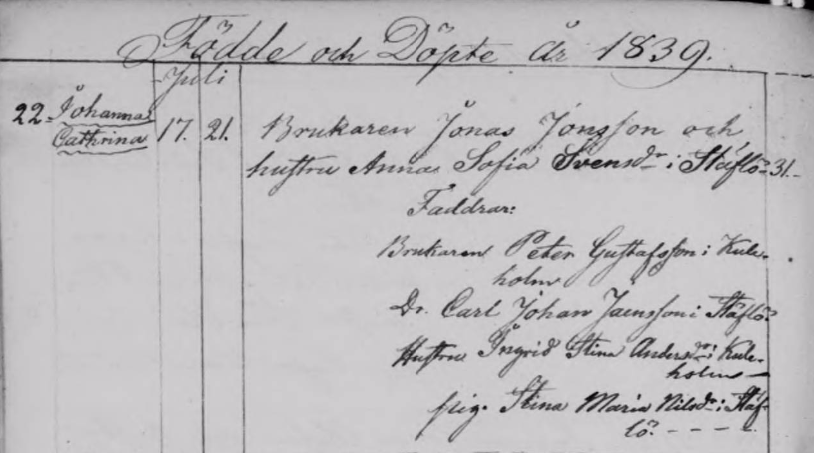 Födde och Döpte år 1839.
Juli
22. Johanna
Cathrina 17. 21. Brukaren Jonas Jonsson och
hustru Anna Sofia Svensdr i Stäflö 31.
Faddrar:
Brukaren Peter Gustafsson i Kule-
holm
Dr. Carl Johan Jaensson i Stäflö.
Hustru Ingrid Stina Andersdr i Kule-
holm
pig. Stina Maria Nilsdr i Stäf-
lö. - - - -